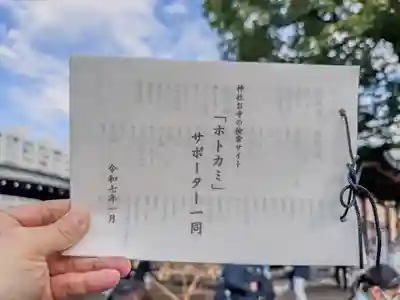 神社お寺の検索サイト
「ホトカミ」
サポーター一同
令和七年一月